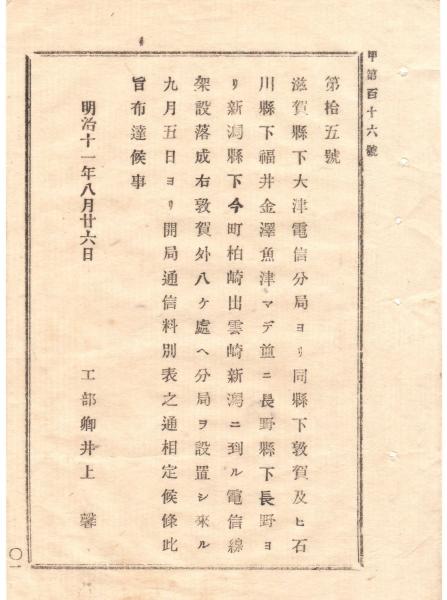 甲第百十六號
第拾五號
滋賀縣下大津電信分局ヨリ同縣下敦賀及ヒ石
川縣下福井金澤魚津マデ並ニ長野縣下長野ヨ
リ新潟縣下今町柏崎出雲崎新潟ニ到ル電信線
架設落成右敦賀外八ケ處ヘ分局ヲ設置シ來ル
九月五日ヨリ開局通信料別表之通相定候條此
旨布達候事
明治十一年八月廿六日
工部卿井上 馨
〇一